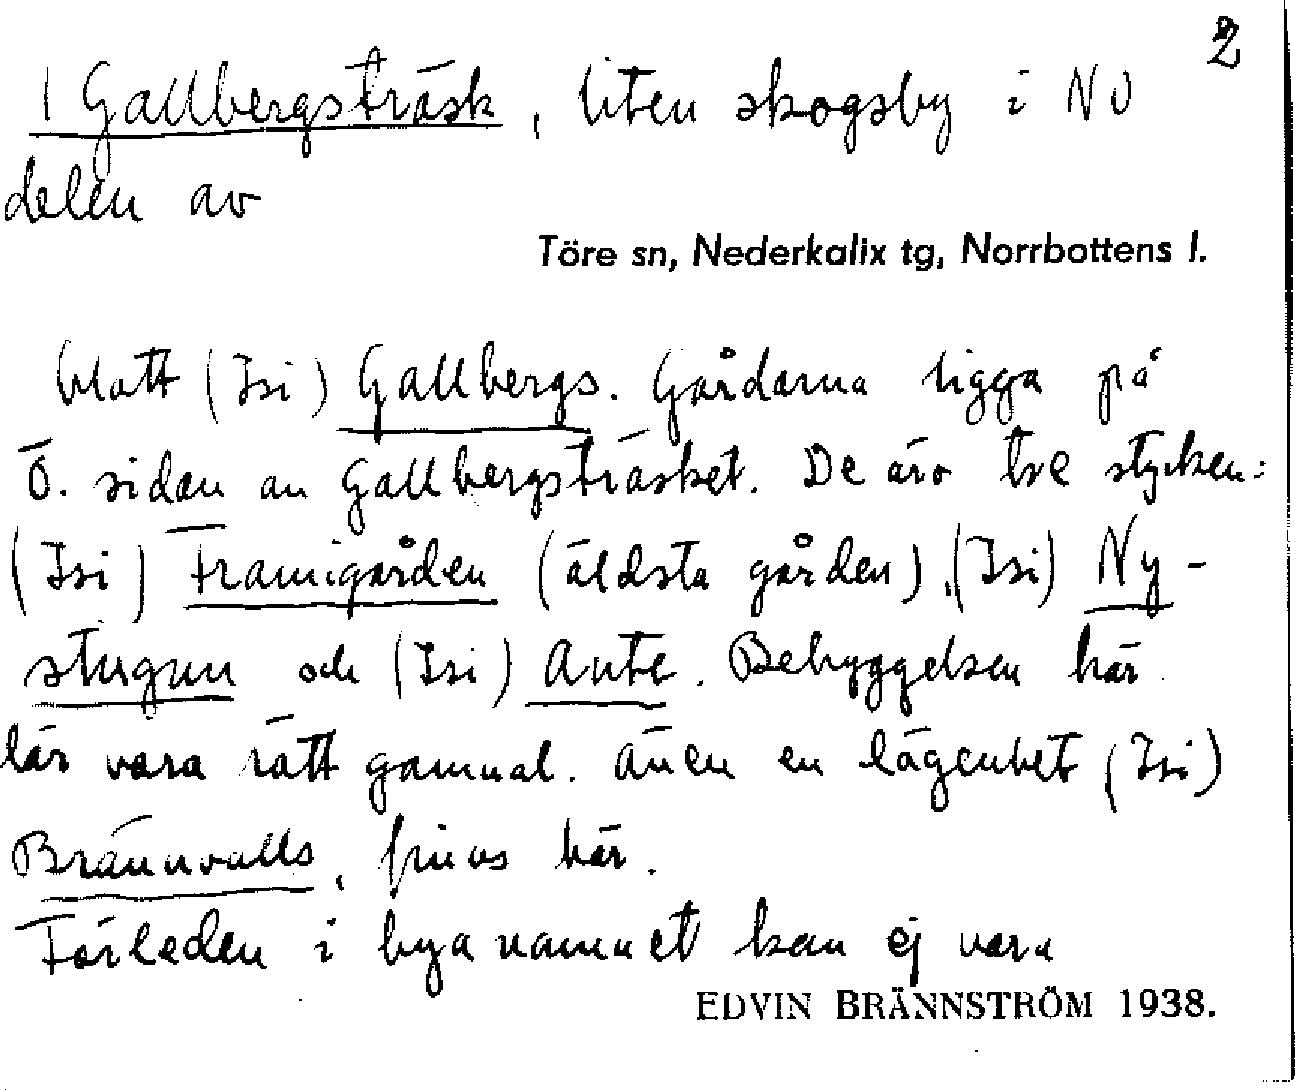 2
1 Gallbergsträsk, liten skogsby i NO
delen av
Töre sn, Nederkalix tg, Norrbottens l.
blott (Isi) Gallbergs. Gårdarna ligga på
Ö. sidan av Gallbergsträsket. De äro tre stycken:
(Isi) Framigården (äldsta gården), (Isi) Ny-
stugun och (Isi) Ante. Bebyggelsen här
lär vara rätt gammal. Även en lägenhet (Isi)
Brännvalls, finns här.
Förleden i byanamnet kan ej vara
EDVIN BRÄNNSTRÖM 1938.